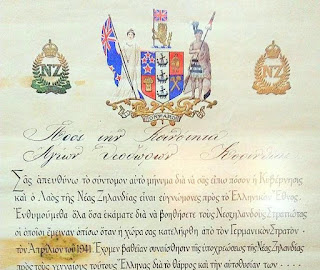 NZ
NZ
ONWARD
Πρὸς τὴν Κοινότητα
Ἁγίων Θεοδώρων
Σᾶς ἀπευθύνω τὸ σύντομον αὐτὸ μήνυμα διὰ νὰ σᾶς εἴπω πόσον ἡ Κυβέρνησις
καὶ ὁ Λαὸς τῆς Νέας Ζηλανδίας εἶναι εὐγνώμονες πρὸς τὸ Ἑλληνικὸν Ἔθνος.
Ἐνθυμούμεθα ὅλα ὅσα ἐκάματε διὰ νὰ βοηθήσετε τοὺς Νεοζηλανδοὺς Στρατιώτας
οἱ ὁποῖοι ἔμειναν ὀπίσω ὅταν ἡ χώρα σας κατελήφθη ἀπὸ τὸν Γερμανικὸν Στρατὸν
τὸν Ἀπρίλιον τοῦ 1941. Ἔχομεν βαθεῖαν συναίσθησιν τῆς ὑποχρεώσεως τῆς Νέας Ζηλανδίας
πρὸς τοὺς γενναίους τούτους Ἕλληνας διὰ τὸ θάρρος καὶ τὴν αὐτοθυσίαν των